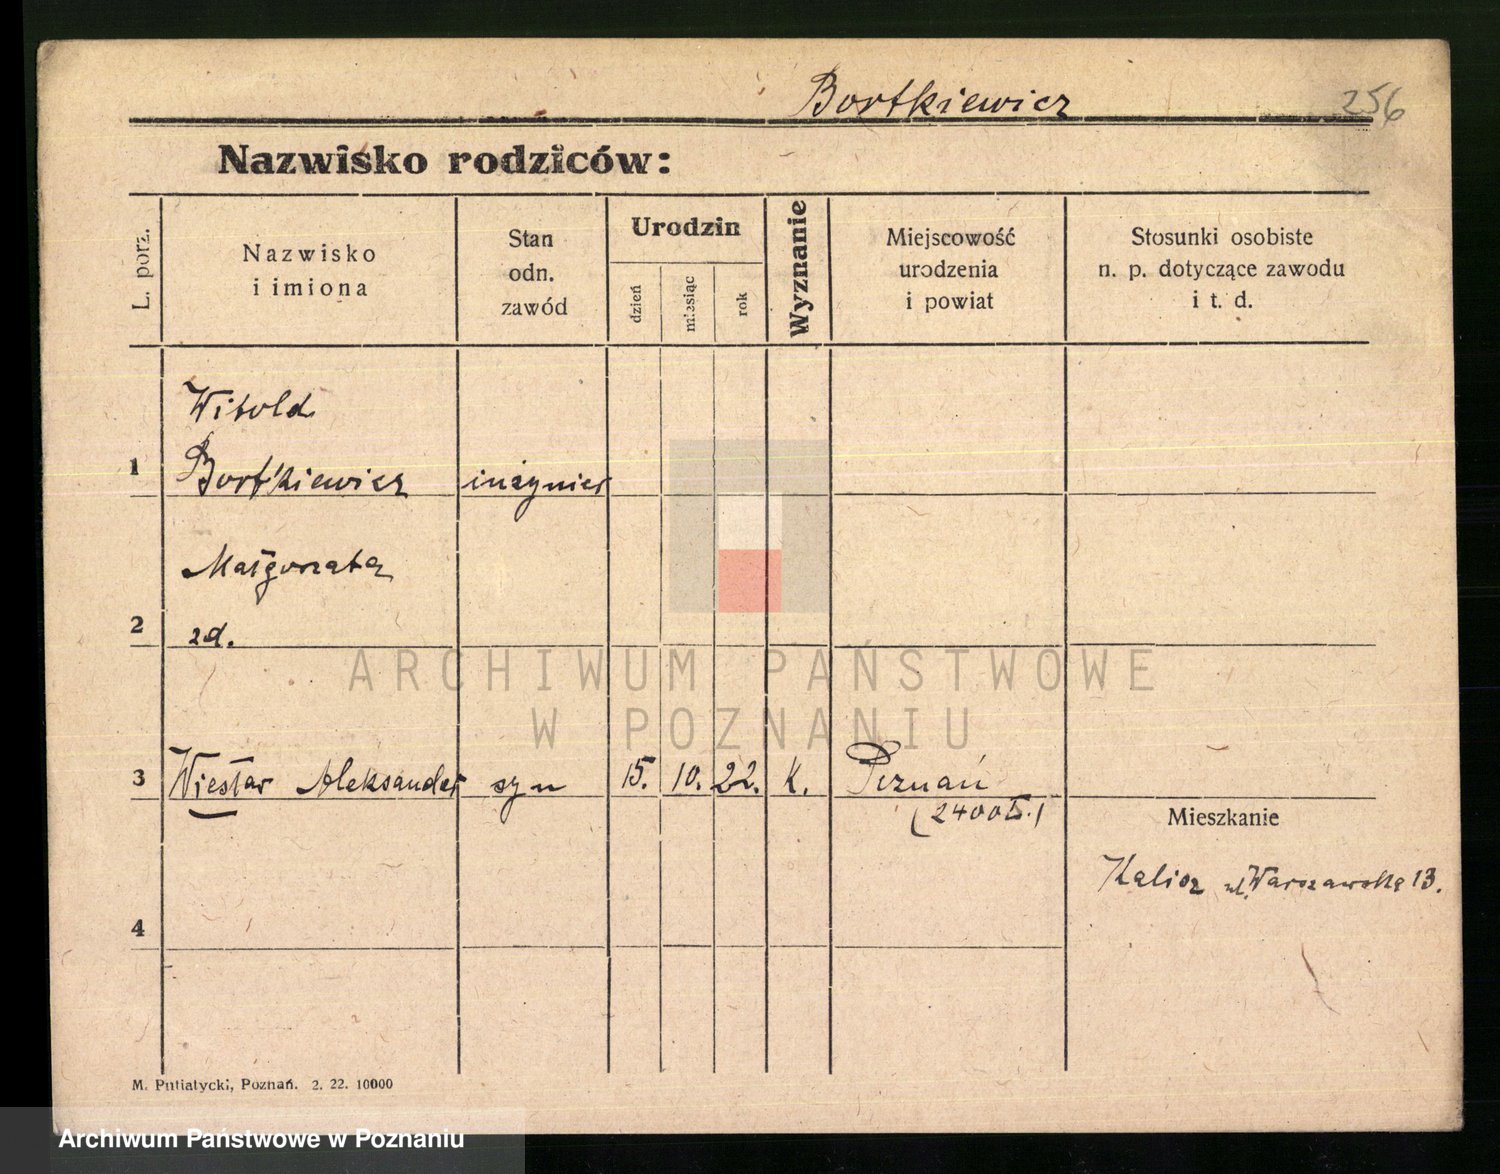 Bortkiewicz
256
Nazwisko rodziców:
L. porz.
Nazwisko
i imiona
Stan
odn.
zawód
Urodzin
dzień
miesiąc
rok
Wyznanie
Miejscowość
urodzenia
i powiat
Stosunki osobiste
n. p. dotyczące zawodu
i t. d.
Witold
1 Bortkiewicz inżynier
Małgorzata
2 zd.
3 Wiesław Aleksander syn 15. 10. 22. K. Poznań
Mieszkanie
Kalisz ul. Warszawska 13.
4
M. Putiatycki, Poznań. 2. 22. 10000
ARCHIWUM PAŃSTWOWE
W POZNANIU
Archiwum Państwowe w Poznaniu